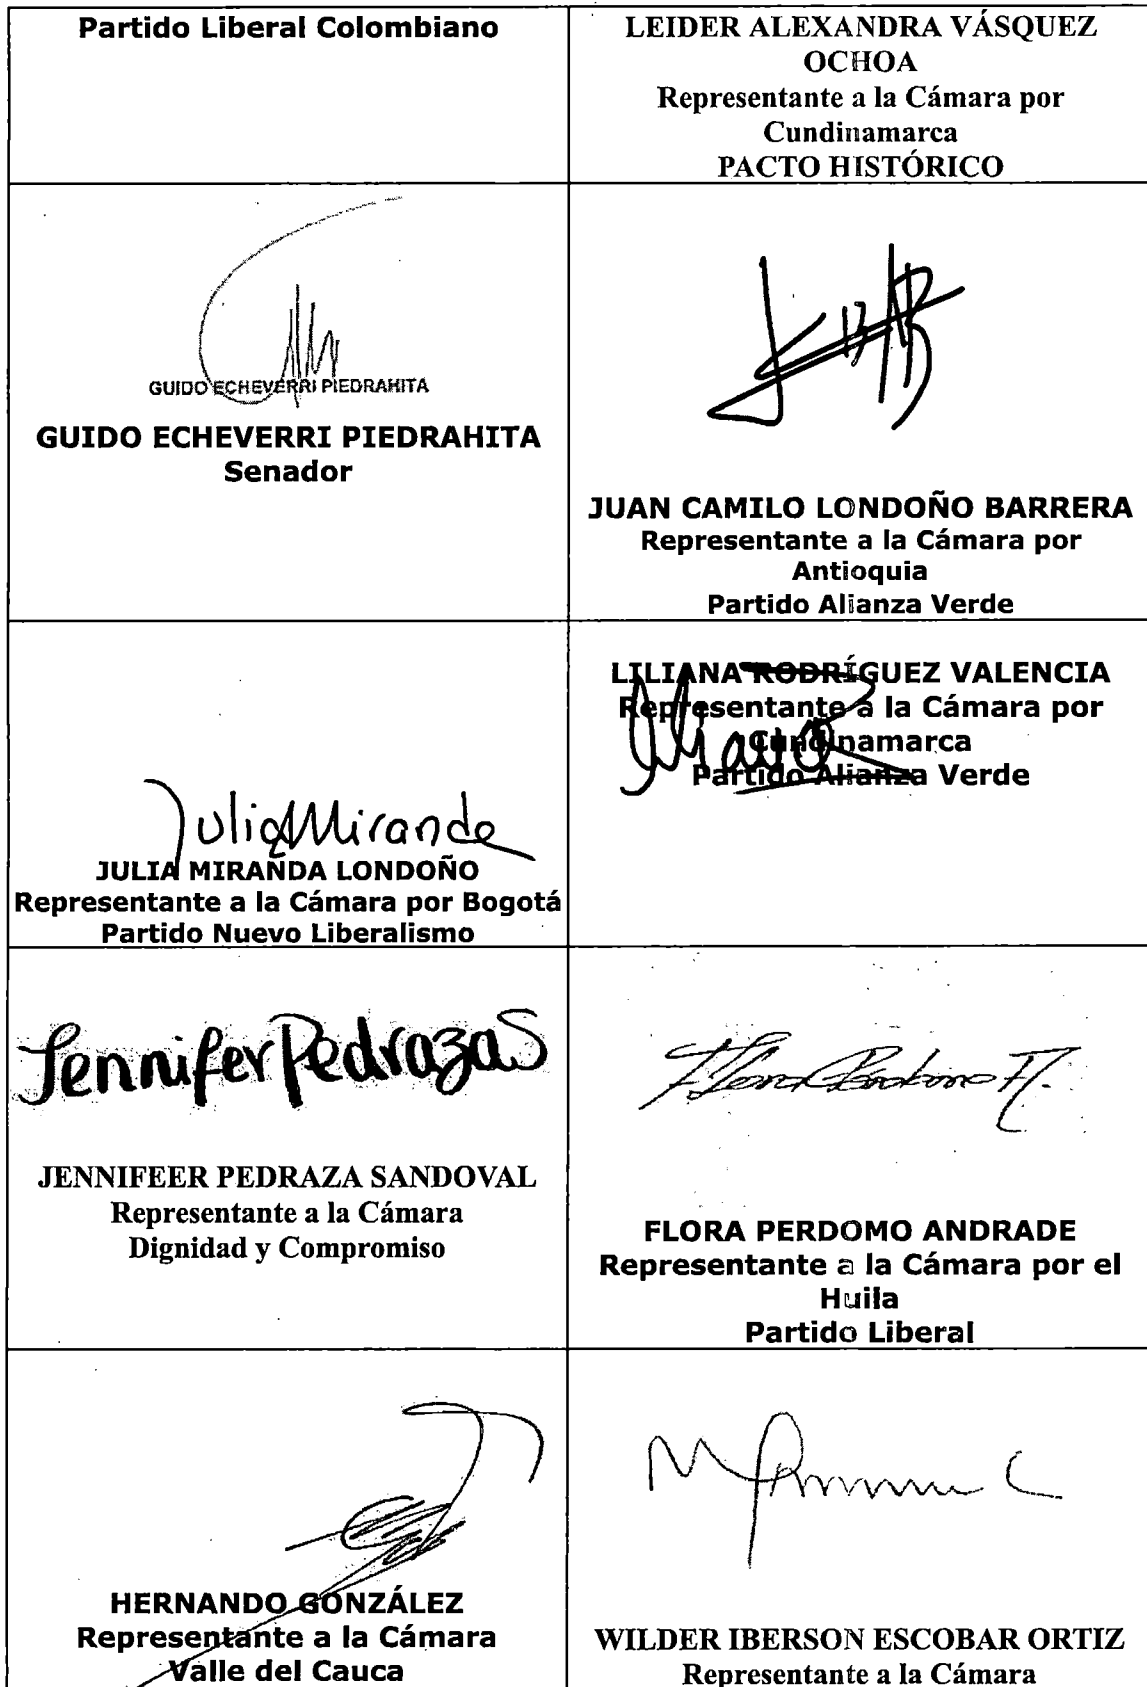 Partido Liberal Colombiano
LEIDER ALEXANDRA VÁSQUEZ
OCHOA
Representante a la Cámara por
Cundinamarca
PACTO HISTÓRICO
GUIDO ECHEVERRI PIEDRAHITA
GUIDO ECHEVERRI PIEDRAHITA
Senador
JUAN CAMILO LONDOÑO BARRERA
Representante a la Cámara por
Antioquia
Partido Alianza Verde
Julia Miranda
JULIA MIRANDA LONDOÑO
Representante a la Cámara por Bogotá
Partido Nuevo Liberalismo
LILIANA RODRÍGUEZ VALENCIA
Representante a la Cámara por
Cundinamarca
Partido Alianza Verde
Jennifer Pedraza S
JENNIFEER PEDRAZA SANDOVAL
Representante a la Cámara
Dignidad y Compromiso
FLORA PERDOMO ANDRADE
Representante a la Cámara por el
Huila
Partido Liberal
HERNANDO GONZÁLEZ
Representante a la Cámara
Valle del Cauca
WILDER IBERSON ESCOBAR ORTIZ
Representante a la Cámara